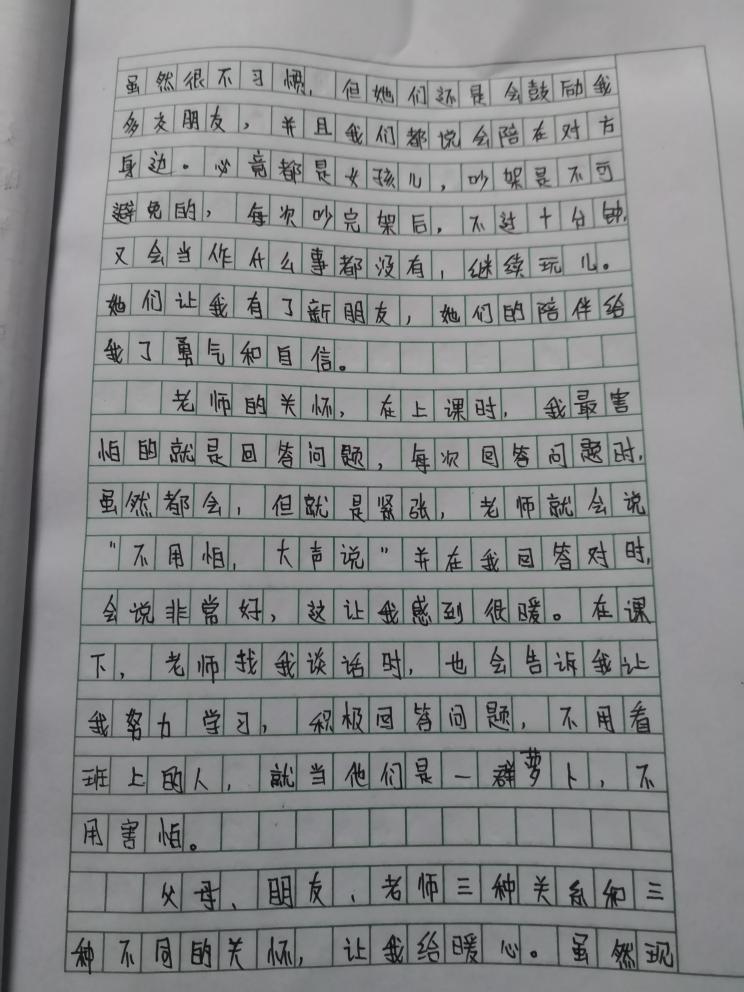 虽然很不习惯，但她们还是会鼓励我
多交朋友，并且我们都说会陪在对方
身边。必竟都是女孩儿，吵架是不可
避免的，每次吵完架后，不过十分钟，
又会当作什么事都没有，继续玩儿。
她们让我有了新朋友，她们的陪伴给
我了勇气和自信。
老师的关怀，在上课时，我最害
怕的就是回答问题，每次回答问题时，
虽然都会，但就是紧张，老师就会说
“不用怕，大声说”并在我回答对时，
会说非常好，这让我感到很暖。在课
下，老师找我谈话时，也会告诉我让
我努力学习，积极回答问题，不用看
班上的人，就当他们是一群萝卜，不
用害怕。
父母、朋友、老师三种关系和三
种不同的关怀，让我给暖心。虽然现